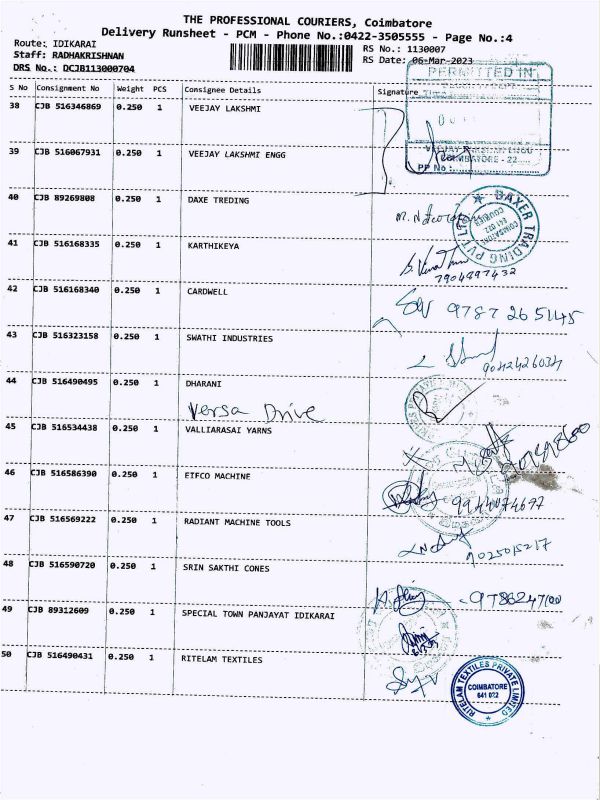 THE PROFESSIONAL COURIERS, Coimbatore
Delivery Runsheet - PCM - Phone No.:0422-3505555 - Page No.:4
Route: IDIKARAI
RS No.: 1130007
Staff: RADHAKRISHNAN
RS Date: 06-Mar-2023
DRS No.: DCJB113000704
PERMITTED IN
S No Consignment No Weight PCS Consignee Details Signature
38 CJB 516346869 0.250 1 VEEJAY LAKSHMI
39 CJB 516067931 0.250 1 VEEJAY LAKSHMI ENGG
COIMBATORE - 22
PP No :
40 CJB 89269808 0.250 1 DAXE TREDING
DAXER TRADING PVT LTD
COIMBATORE
641 022
41 CJB 516168335 0.250 1 KARTHIKEYA
7904497432
42 CJB 516168340 0.250 1 CARDWELL
9787265145
43 CJB 516323158 0.250 1 SWATHI INDUSTRIES
9042426034
44 CJB 516490495 0.250 1 DHARANI
Versa Drive
45 CJB 516534438 0.250 1 VALLIARASAI YARNS
46 CJB 516586390 0.250 1 EIFCO MACHINE
9944074697
47 CJB 516569222 0.250 1 RADIANT MACHINE TOOLS
9025015217
48 CJB 516590720 0.250 1 SRIN SAKTHI CONES
9786247100
49 CJB 89312609 0.250 1 SPECIAL TOWN PANJAYAT IDIKARAI
50 CJB 516490431 0.250 1 RITELAM TEXTILES
RITELAM TEXTILES PRIVATE LIMITED
COIMBATORE
641 022